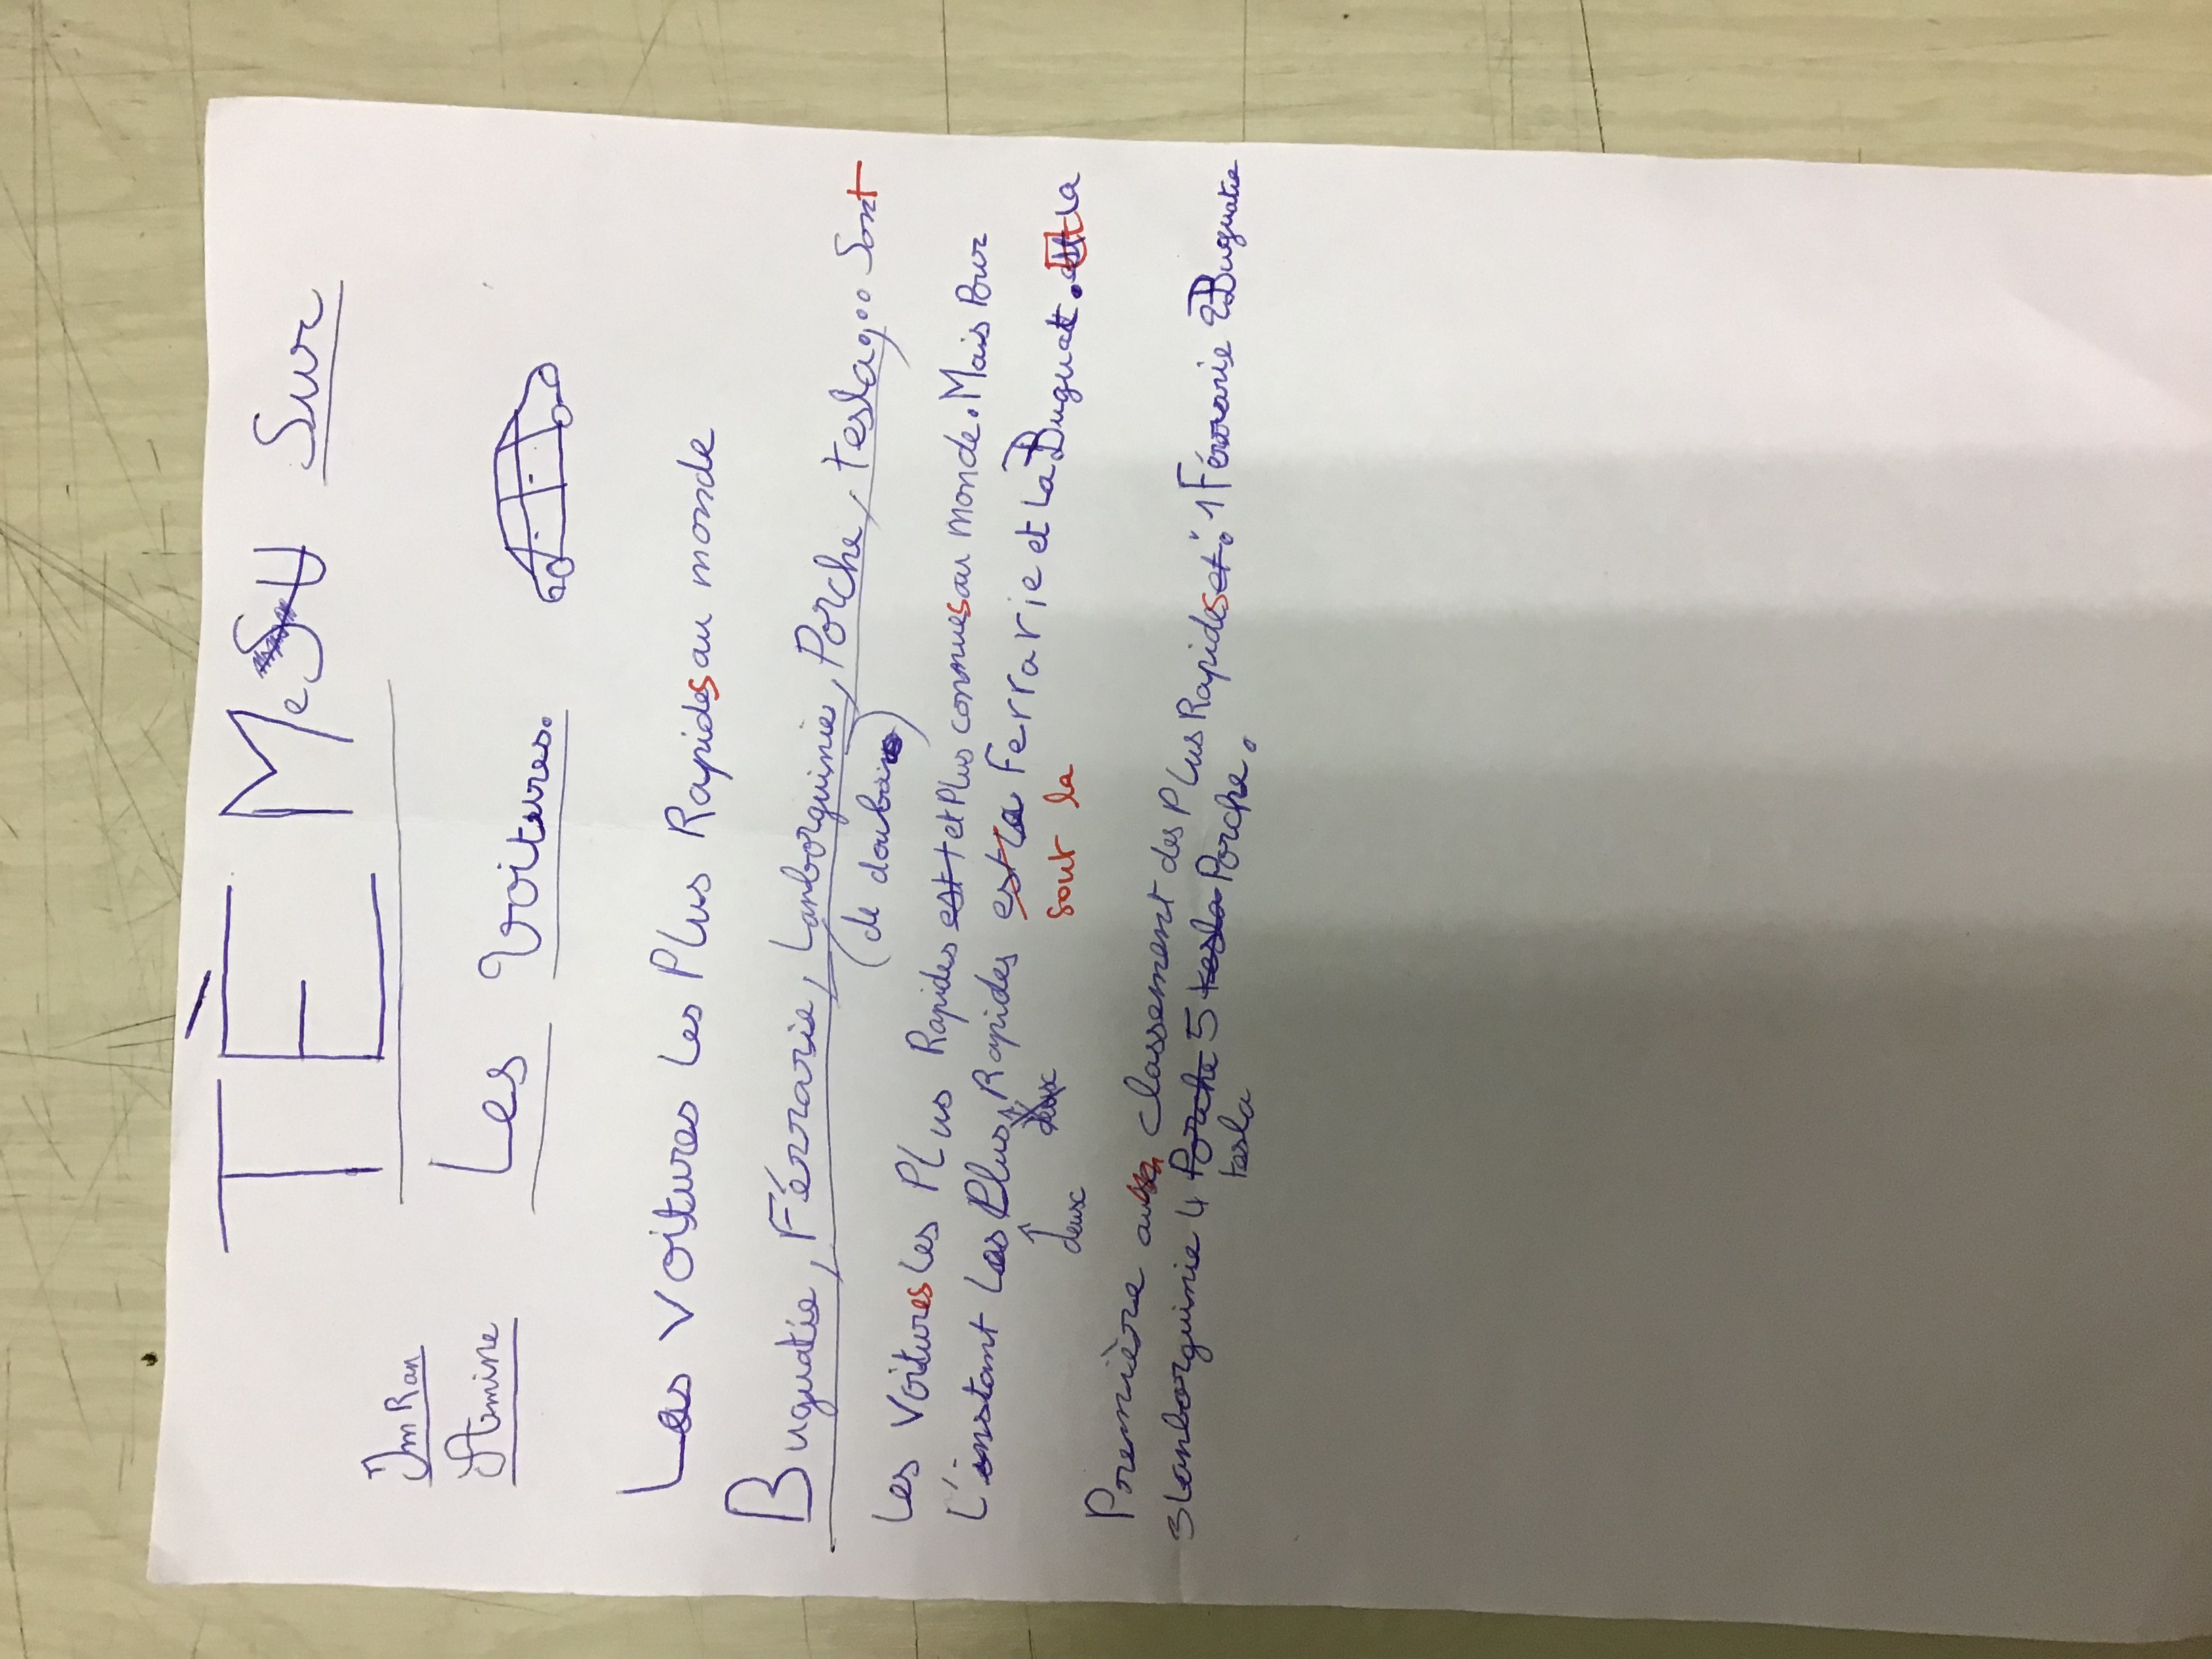 TÈMe Sur
ImRan
Amine
Les Voitures.
Les voitures les Plus Rapides au monde
Buguatie, Férrarie, Lanborguinie, Porche, tesla,... Sont
(de doubai)
Les Voitures les PLus Rapides est et Plus connues au monde. Mais Pour
L'instant Les Plus Rapides est la Ferrarie et La Buguat. est la
deux deux sont la
Première au classement des PLus Rapides et : 1 Férrarie 2 Buguatie
3 Lanborguinie 4 Porche 5 tesla Porche.
tesla